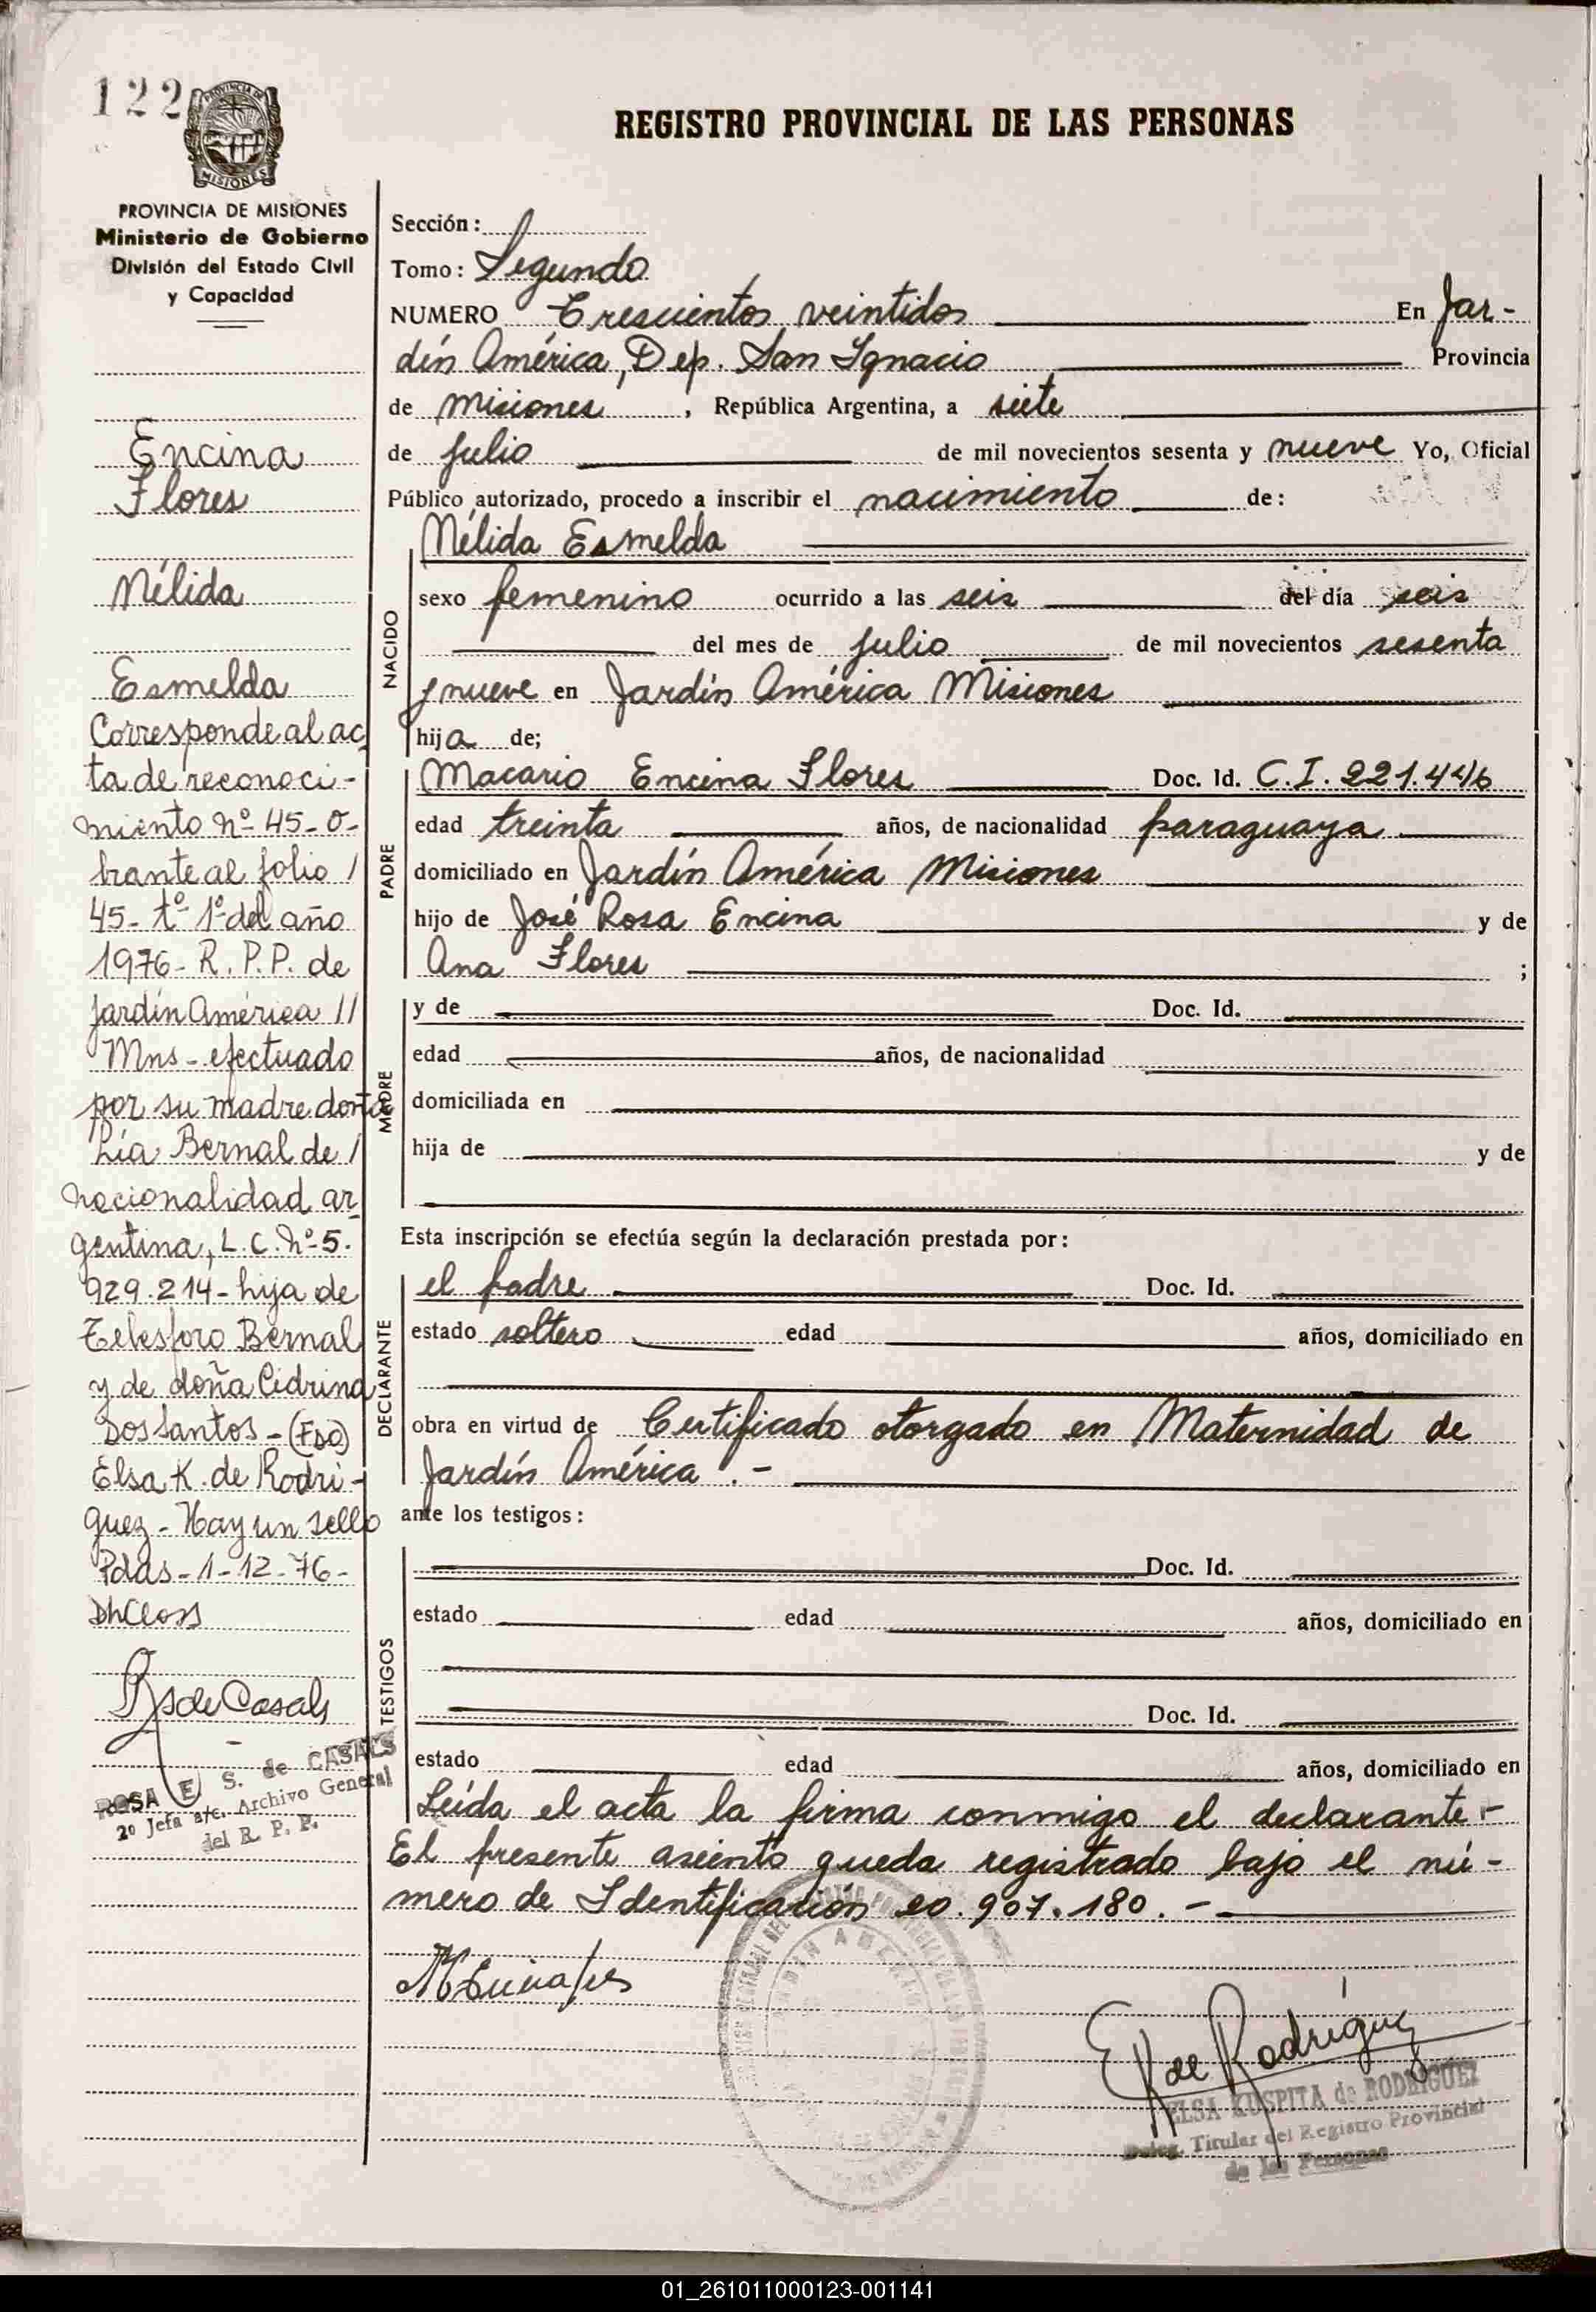 122
PROVINCIA DE
MISIONES
PROVINCIA DE MISIONES
Ministerio de Gobierno
División del Estado Civil
y Capacidad
Encina
Flores
Nélida
Esmelda
Corresponde al ac
ta de reconoci-
miento nº 45-o-
brante al folio /
45- tº 1º del año
1976- R. P. P. de
Jardín América //
Mns - efectuado
por su madre doña
Lía Bernal de /
nacionalidad ar
gentina, L. C. nº 5.
929.214- hija de
Telesforo Bernal
y de doña Cidrina
Dos Santos - (Fdo)
Elsa K. de Rodri-
guez - Hay un sello
Pdas - 1-12-76-
RSdeCasals
ROSA E S. de CASALS
2º Jefa a/c. Archivo General
del R. P. P.
REGISTRO PROVINCIAL DE LAS PERSONAS
Sección:
Tomo: Segundo
NUMERO Trescientos veintidos En Jar-
dín América, Dep. San Ignacio Provincia
de Misiones, República Argentina, a siete
de julio de mil novecientos sesenta y nueve Yo, Oficial
Público autorizado, procedo a inscribir el nacimiento de:
Nélida Esmelda
NACIDO
sexo femenino ocurrido a las seis del día seis
del mes de julio de mil novecientos sesenta
y nueve en Jardín América Misiones
hija de;
PADRE
Macario Encina Flores Doc. Id. C.I. 221.446
edad treinta años, de nacionalidad paraguaya
domiciliado en Jardín América Misiones
hijo de José Rosa Encina y de
Ana Flores ;
MADRE
y de Doc. Id.
edad años, de nacionalidad
domiciliada en
hija de y de
Esta inscripción se efectúa según la declaración prestada por:
DECLARANTE
el padre Doc. Id.
estado soltero edad años, domiciliado en
obra en virtud de Certificado otorgado en Maternidad de
Jardín América .-
ante los testigos:
TESTIGOS
Doc. Id.
estado edad años, domiciliado en
Doc. Id.
estado edad años, domiciliado en
Leída el acta la firma conmigo el declarante.-
El presente asiento queda registrado bajo el nú-
mero de Identificación 20.907.180.-
EKde Rodríguez
ELSA KUSPITA de RODRIGUEZ
Deleg. Titular del Registro Provincial
de las Personas
01_261011000123-001141